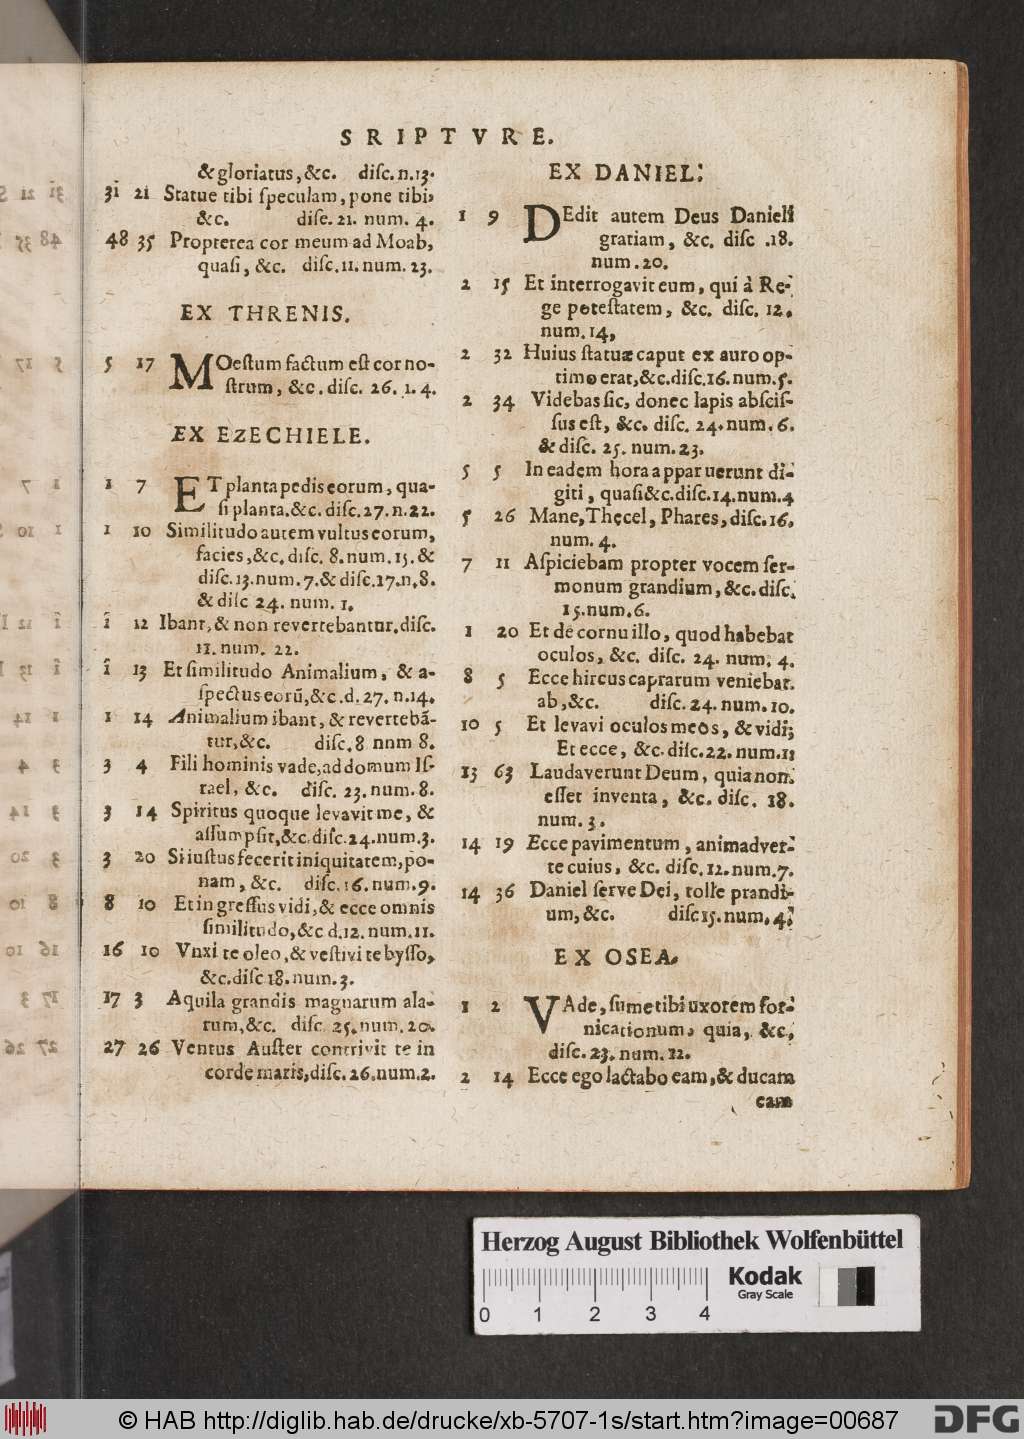 SRIPTVRE.
& gloriatus, &c. disc. n. 13.
31 21 Statue tibi speculam, pone tibi,
&c. dise. 21. num. 4.
48 35 Propterea cor meum ad Moab,
quasi, &c. disc. 11. num. 23.
EX THRENIS.
5 17 MOestum factum est cor no-
strum, &c. disc. 26. 1. 4.
EX EzECHIELE.
1 7 ET planta pedis eorum, qua-
si planta. &c. disc. 27. n. 22.
1 10 Similitudo autem vultus eorum,
facies, &c. disc. 8. num. 15. &
disc. 13. num. 7. & disc. 17. n. 8.
& disc 24. num. 1.
1 12 Ibant, & non revertebantur. disc.
11. num. 22.
1 13 Et similitudo Animalium, & a-
spectus eorũ, &c. d. 27. n. 14.
1 14 Animalium ibant, & revertebã-
tur, &c. disc. 8 nnm 8.
3 4 Fili hominis vade, ad domum Is-
rael, &c. disc. 23. num. 8.
3 14 Spiritus quoque levavit me, &
assumpsit, &c. disc. 24. num. 3.
3 20 Si iustus fecerit iniquitatem, po-
nam, &c. disc. 16. num. 9.
8 10 Et ingressus vidi, & ecce omnis
similitudo, &c d. 12. num. 11.
16 10 Vnxi te oleo, & vestivi te bysso,
&c. disc 18. num. 3.
17 3 Aquila grandis magnarum ala-
rum, &c. disc. 25. num. 20.
27 26 Ventus Auster contrivit te in
corde maris, disc. 26. num. 2.
EX DANIEL.
1 9 DEdit autem Deus Danieli
gratiam, &c. disc .18.
num. 20.
2 15 Et interrogavit eum, qui à Re-
ge potestatem, &c. disc. 12.
num. 14,
2 32 Huius statuæ caput ex auro op-
timo erat, &c. disc. 16. num. 5.
2 34 Videbas sic, donec lapis abscis-
sus est, &c. disc. 24. num. 6.
& disc. 25. num. 23.
5 5 In eadem hora apparuerunt di-
giti, quasi &c. disc. 14. num. 4
5 26 Mane, Thecel, Phares, disc. 16.
num. 4.
7 11 Aspiciebam propter vocem ser-
monum grandium, &c. disc.
15. num. 6.
1 20 Et de cornu illo, quod habebat
oculos, &c. disc. 24. num. 4.
8 5 Ecce hircus caprarum veniebat.
ab, &c. disc. 24. num. 10.
10 5 Et levavi oculos meos, & vidi;
Et ecce, &c. disc. 22. num. 11
13 63 Laudaverunt Deum, quia non
esset inventa, &c. disc. 18.
num. 3.
14 19 Ecce pavimentum, animadver-
te cuius, &c. disc. 12. num. 7.
14 36 Daniel serve Dei, tolle prandi-
um, &c. disc 15. num. 4.
EX OSEA.
1 2 VAde, sume tibi uxorem for-
nicationum, quia, &c,
disc. 23. num. 12.
2 14 Ecce ego lactabo eam, & ducam
eam
Herzog August Bibliothek Wolfenbüttel
Kodak
Gray Scale
0 1 2 3 4
© HAB http://diglib.hab.de/drucke/xb-5707-1s/start.htm?image=00687
DFG